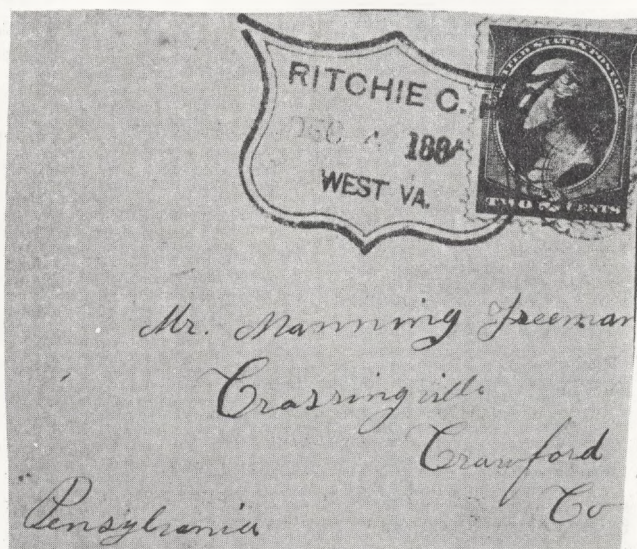 RITCHIE C. H
DEC 4 1884
WEST VA.
UNITED STATES POSTAGE
TWO 2 CENTS
Mr. Manning Freeman
Crossingville
Crawford
Co
Pensylvania